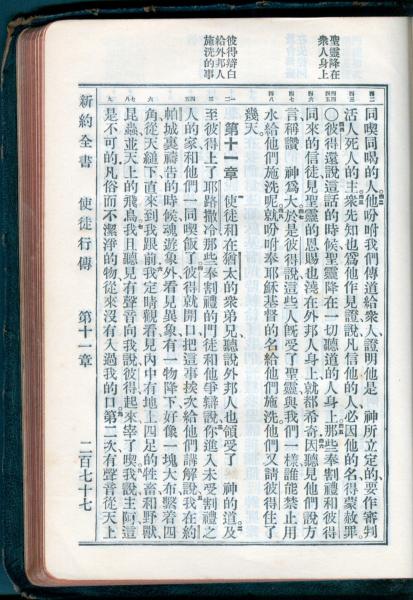 聖靈降在
衆人身上
彼得辯白
給外邦人
施洗的事
四二 同喫同喝的人他吩咐我們傳道給衆人、證明他是　神所立定的、要作審判
四三 活人死人的主衆先知也爲他作見證、說凡信他的人、必因他的名得蒙赦罪。
四四 四五 〇彼得還說這話的時候、聖靈降在一切聽道的人身上那些奉割禮和彼得
四六 同來的信徒見聖靈的恩賜也澆在外邦人身上就都希奇因聽見他們說方
四七 言稱讚　神爲大於是彼得說這些人旣受了聖靈與我們一樣、誰能禁止用
四八 水給他們施洗呢就吩咐奉耶穌基督的名給他們施洗他們又請彼得住了
幾天。
一 二 第十一章　使徒和在猶太的衆弟兄聽說外邦人也領受了　神的道及
三 至彼得上了耶路撒冷、那些奉割禮的門徒和他爭辯說、你進入未受割禮之
四 五 人的家和他們一同喫飯了彼得就開口把這事挨次給他們講解說我在約
帕城裏禱告的時候、魂遊象外、看見異象、有一物降下、好像一塊大布、繫着四
六 角、從天縋下、直來到我跟前我定睛觀看見內中有地上四足的牲畜和野獸
七 八 昆蟲並天上的飛鳥我且聽見有聲音向我說彼得起來宰了喫我說主阿這
九 是不可的凡俗而不潔淨的物從來沒有入過我的口第二次有聲音從天上
新約全書　使徒行傳　第十一章　二百七十七